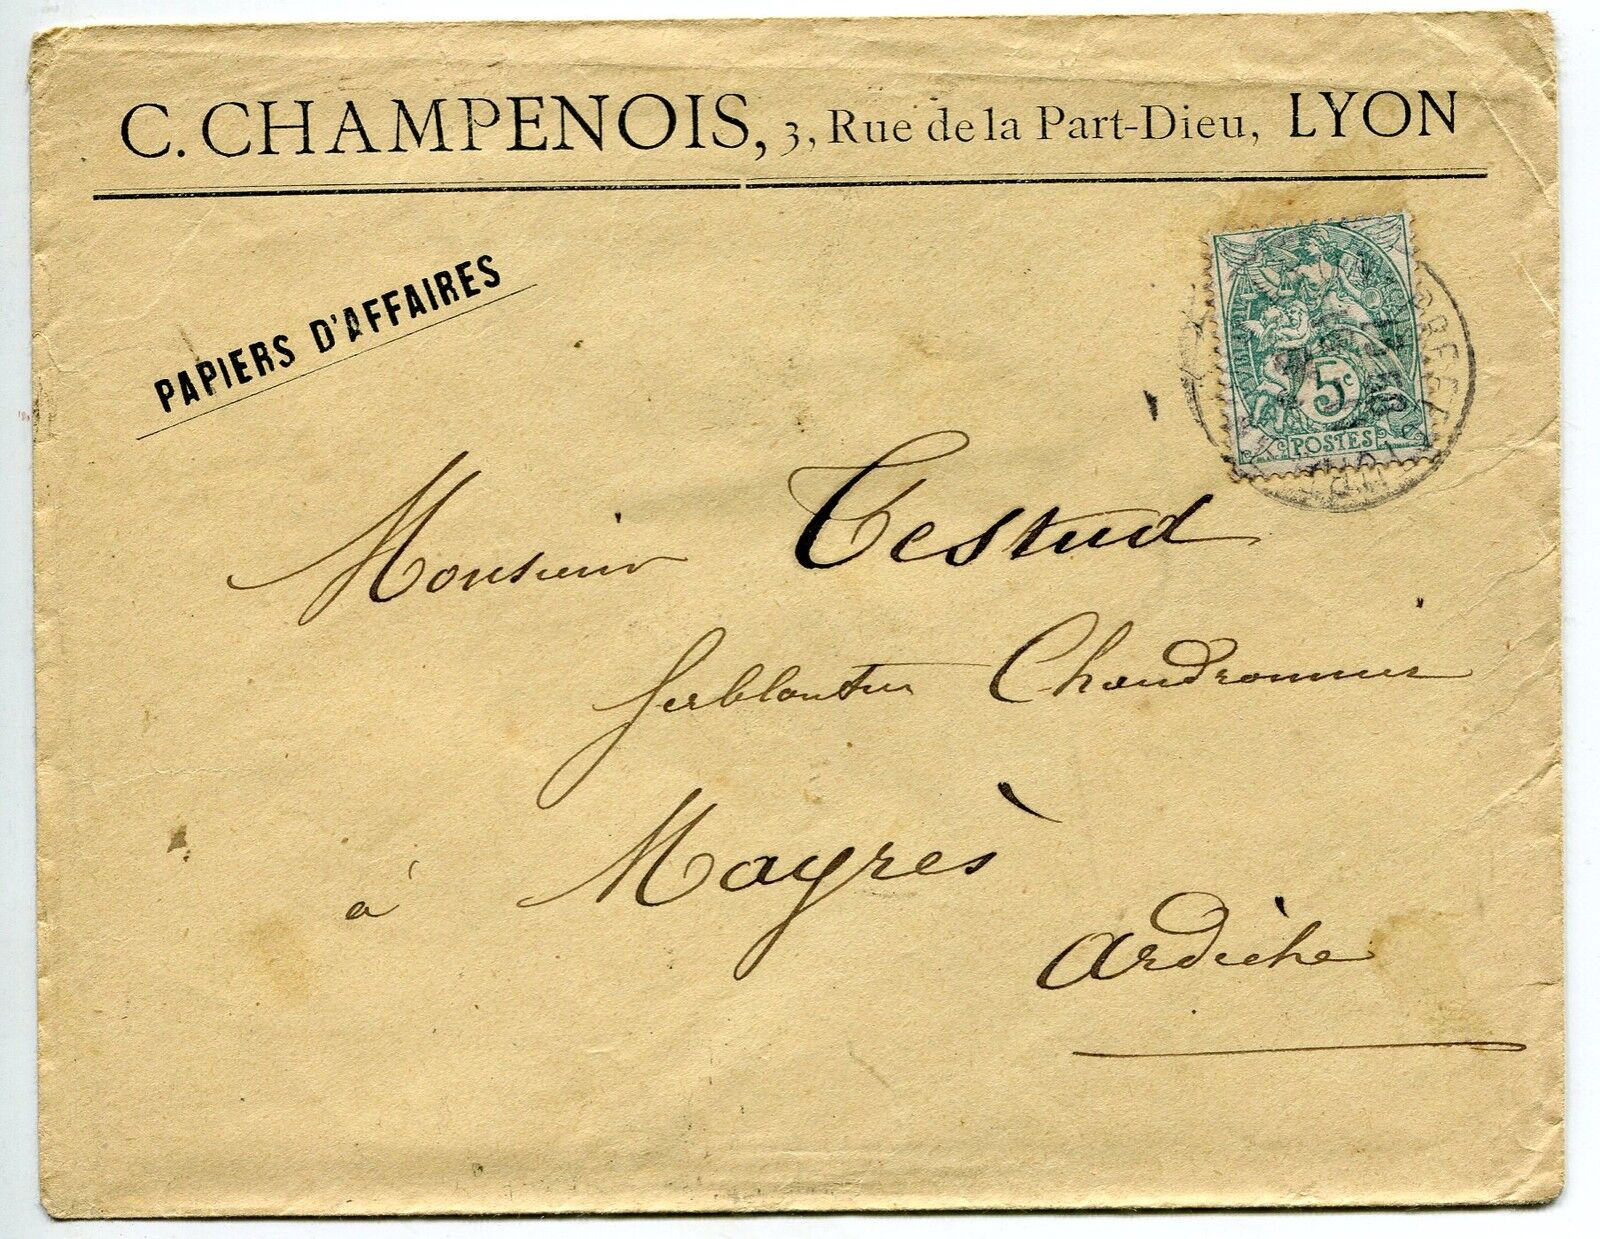 C. CHAMPENOIS, 3, Rue de la Part-Dieu, LYON
PAPIERS D'AFFAIRES
5c
POSTES
Monsieur Testud
ferblantier Chaudronnier
à Mayrès
Ardèche